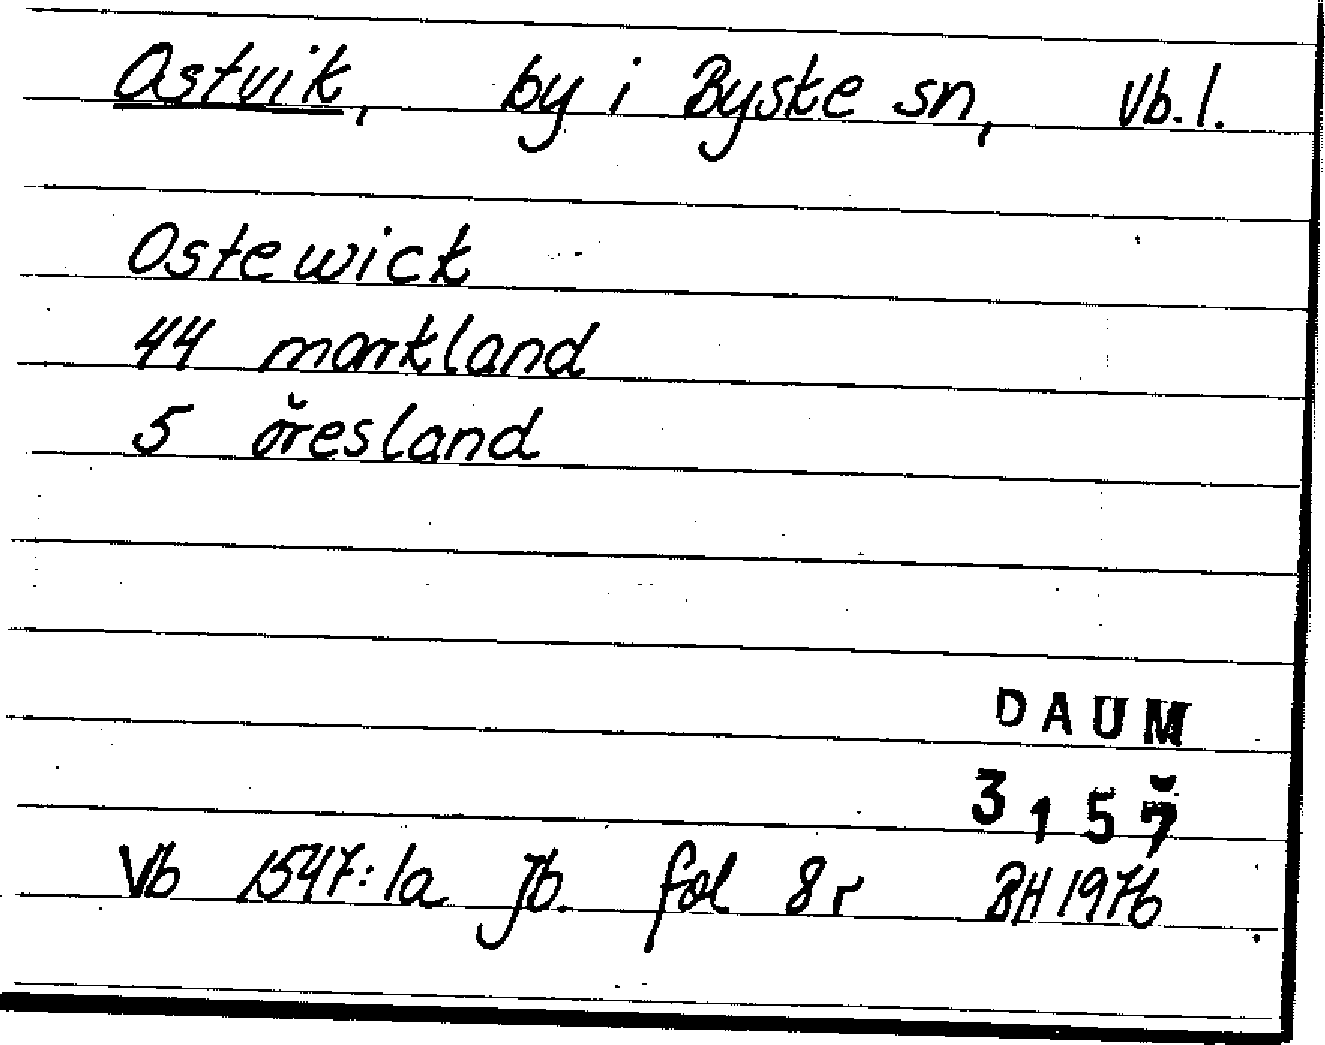 Ostvik, by i Byske sn, Vb. l.
Ostewick
44 markland
5 öresland
DAUM
3157
Vb 1547:1a jb. fol 8r BH 1976